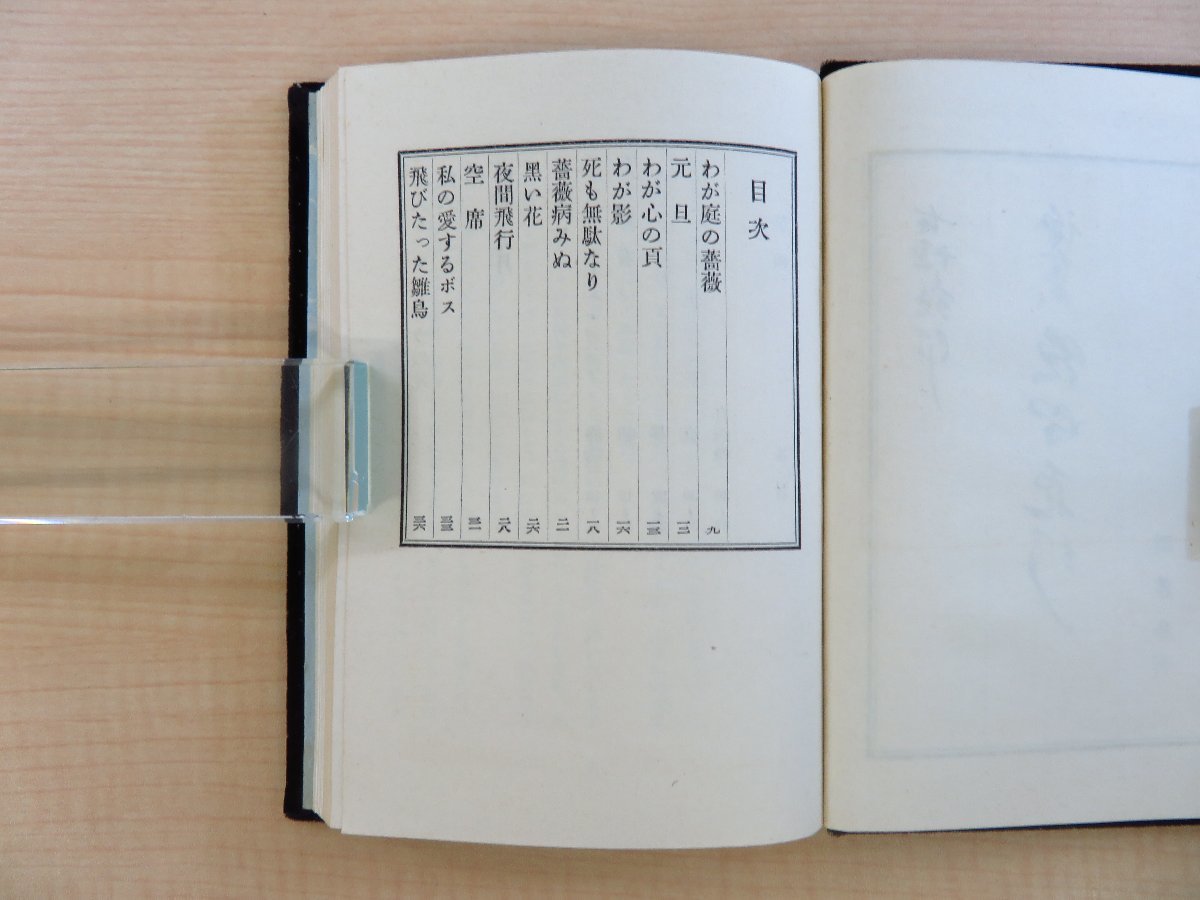 目次
わが庭の薔薇 九
元旦 一二
わが心の頁 一三
わが影 一六
死も無駄なり 一八
薔薇病みぬ 二一
黑い花 二六
夜間飛行 二八
空席 三一
私の愛するボス 三三
飛びたった雛鳥 三六